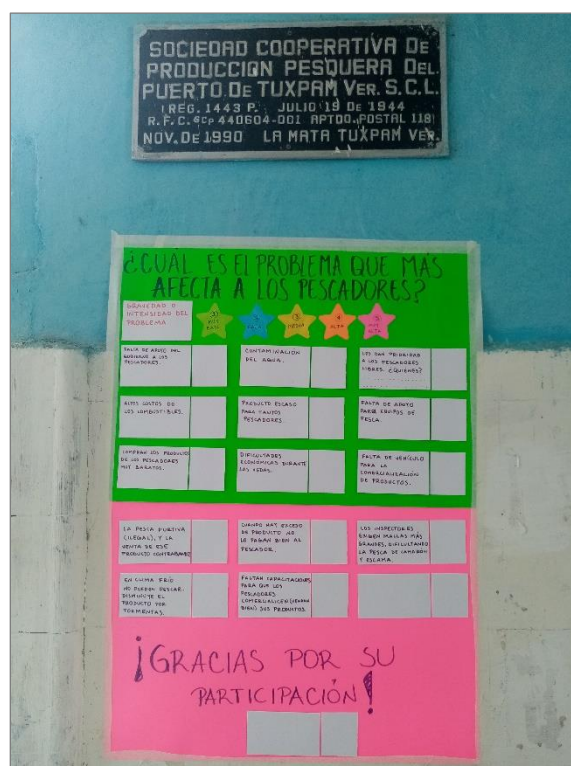 SOCIEDAD COOPERATIVA DE
PRODUCCION PESQUERA DEL
PUERTO DE TUXPAM VER. S.C.L.
REG. 1443 P. JULIO 19 DE 1944
R.F.C. 6CP 440604-001 APTDO. POSTAL 118
NOV. DE 1990 LA MATA TUXPAM VER.
¿CUAL ES El PROBLEMA QUE MAS
AFECTA A LOS PESCADORES?
GRAVEDAD O
INTENSIDAD DEL
PROBLEMA
MEDIA
4
ALTA
5
MUY
ALTA
FALTA DE APOYO DEL
GOBIERNO A LOS
PESCADORES.
CONTAMINACIÓN
DEL AGUA.
LES DAN PRIORIDAD
A LOS PESCADORES
LIBRES ¿QUIENES?
ALTOS COSTOS DE
LOS COMBUSTIBLES.
PRODUCTO ESCASO
PARA TANTOS
PESCADORES.
FALTA DE APOYO
PARA EQUIPOS DE
PESCA.
COMPRAN LOS PRODUCTOS
DE LOS PESCADORES
MUY BARATOS.
DIFICULTADES
ECONOMICAS DURANTE
LAS VEDAS.
FALTA DE VEHÍCULO
PARA LA
COMERCIALIZACIÓN
DE PRODUCTOS.
LA PESCA FURTIVA
(ILEGAL), Y LA
VENTA DE ESE
PRODUCTO CONTRABANDO
CUANDO HAY EXCESO
DE PRODUCTO NO
LE PAGAN BIEN AL
PESCADOR.
LOS INSPECTORES
EXIGEN MALLAS MÁS
GRANDES, DIFICULTANDO
LA PESCA DE CAMARÓN
Y ESCAMA.
EN CLIMA FRÍO
NO PUEDEN PESCAR.
DISMINUYE EL
PRODUCTO POR
TORMENTAS.
FALTAN CAPACITACIONES
PARA QUE LOS
PESCADORES
COMERCIALICEN (VENDAN
BIEN) SUS PRODUCTOS
¡GRACIAS POR SU
PARTICIPACIÓN!